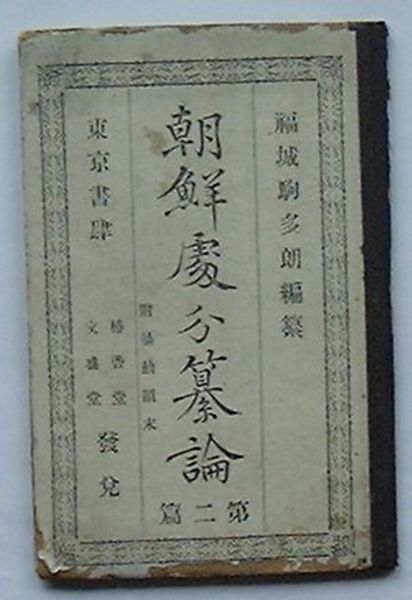 福城駒多朗編纂
朝鮮處分纂論
第二篇
顛末
東京書肆
椿香堂
文盛堂
發兌